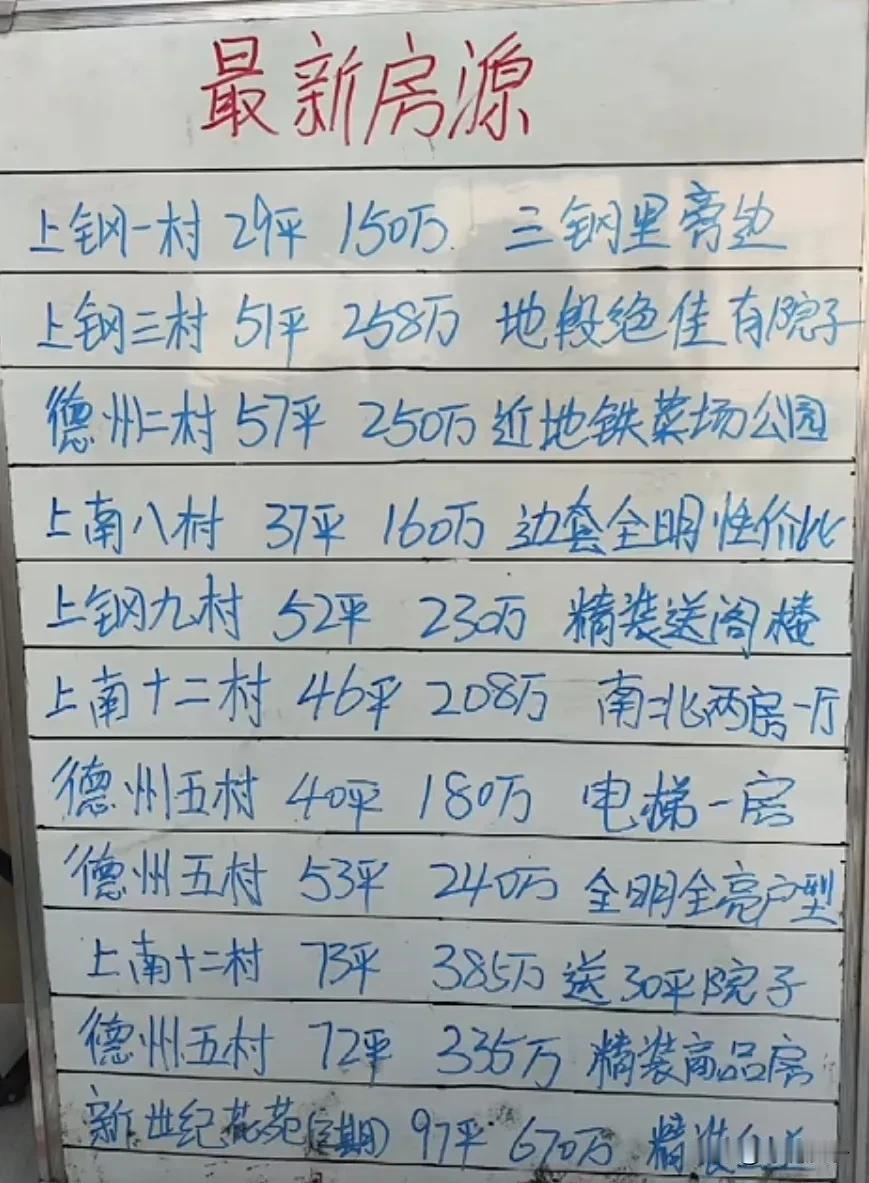 最新房源
上钢一村 29平 150万 三钢里旁边
上钢三村 51平 258万 地段绝佳有院子
德州二村 57平 250万 近地铁菜场公园
上南八村 37平 160万 边套全明性价比
上钢九村 52平 230万 精装送阁楼
上南十二村 46平 208万 南北两房一厅
德州五村 40平 180万 电梯一房
德州五村 53平 240万 全明全亮户型
上南十二村 73平 385万 送30平院子
德州五村 72平 335万 精装商品房
新世纪花苑(期) 97平 670万 精装